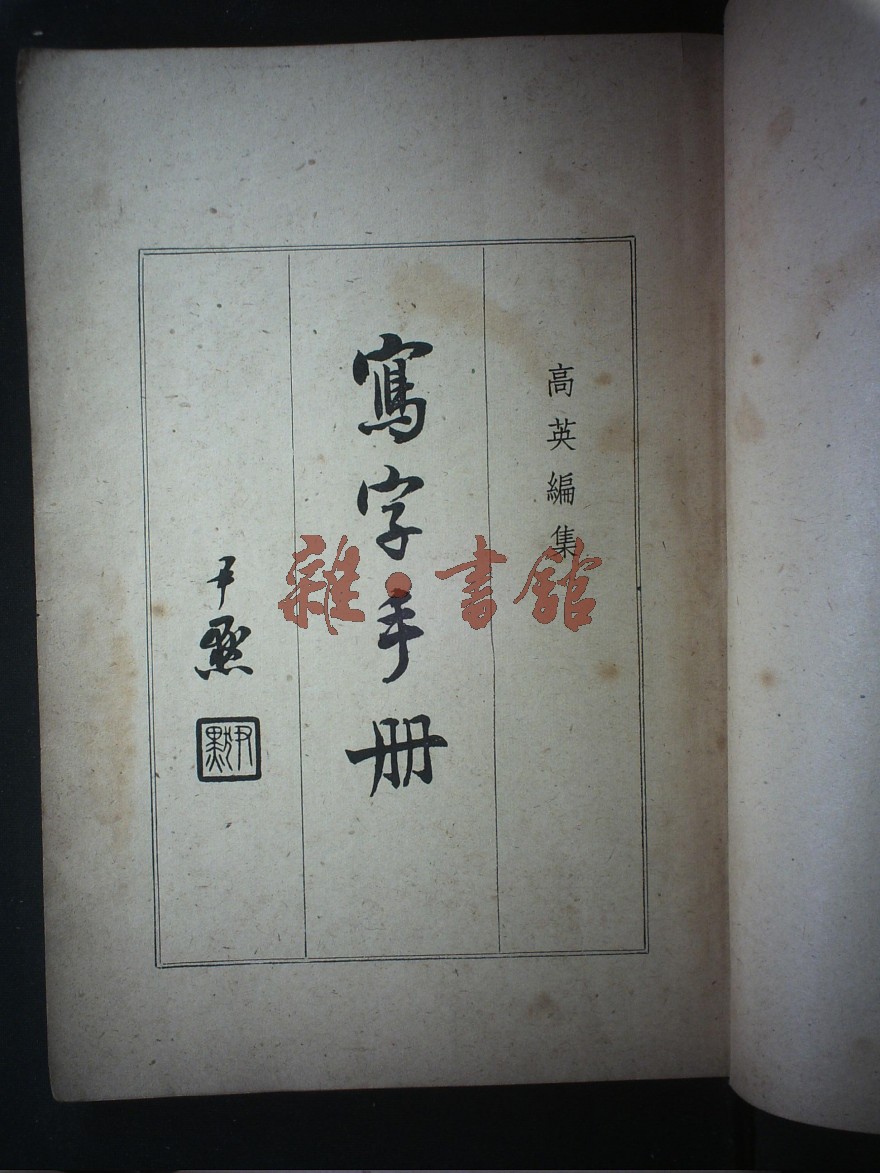 高英編集
寫字手册
尹默
尹默
雜·書館